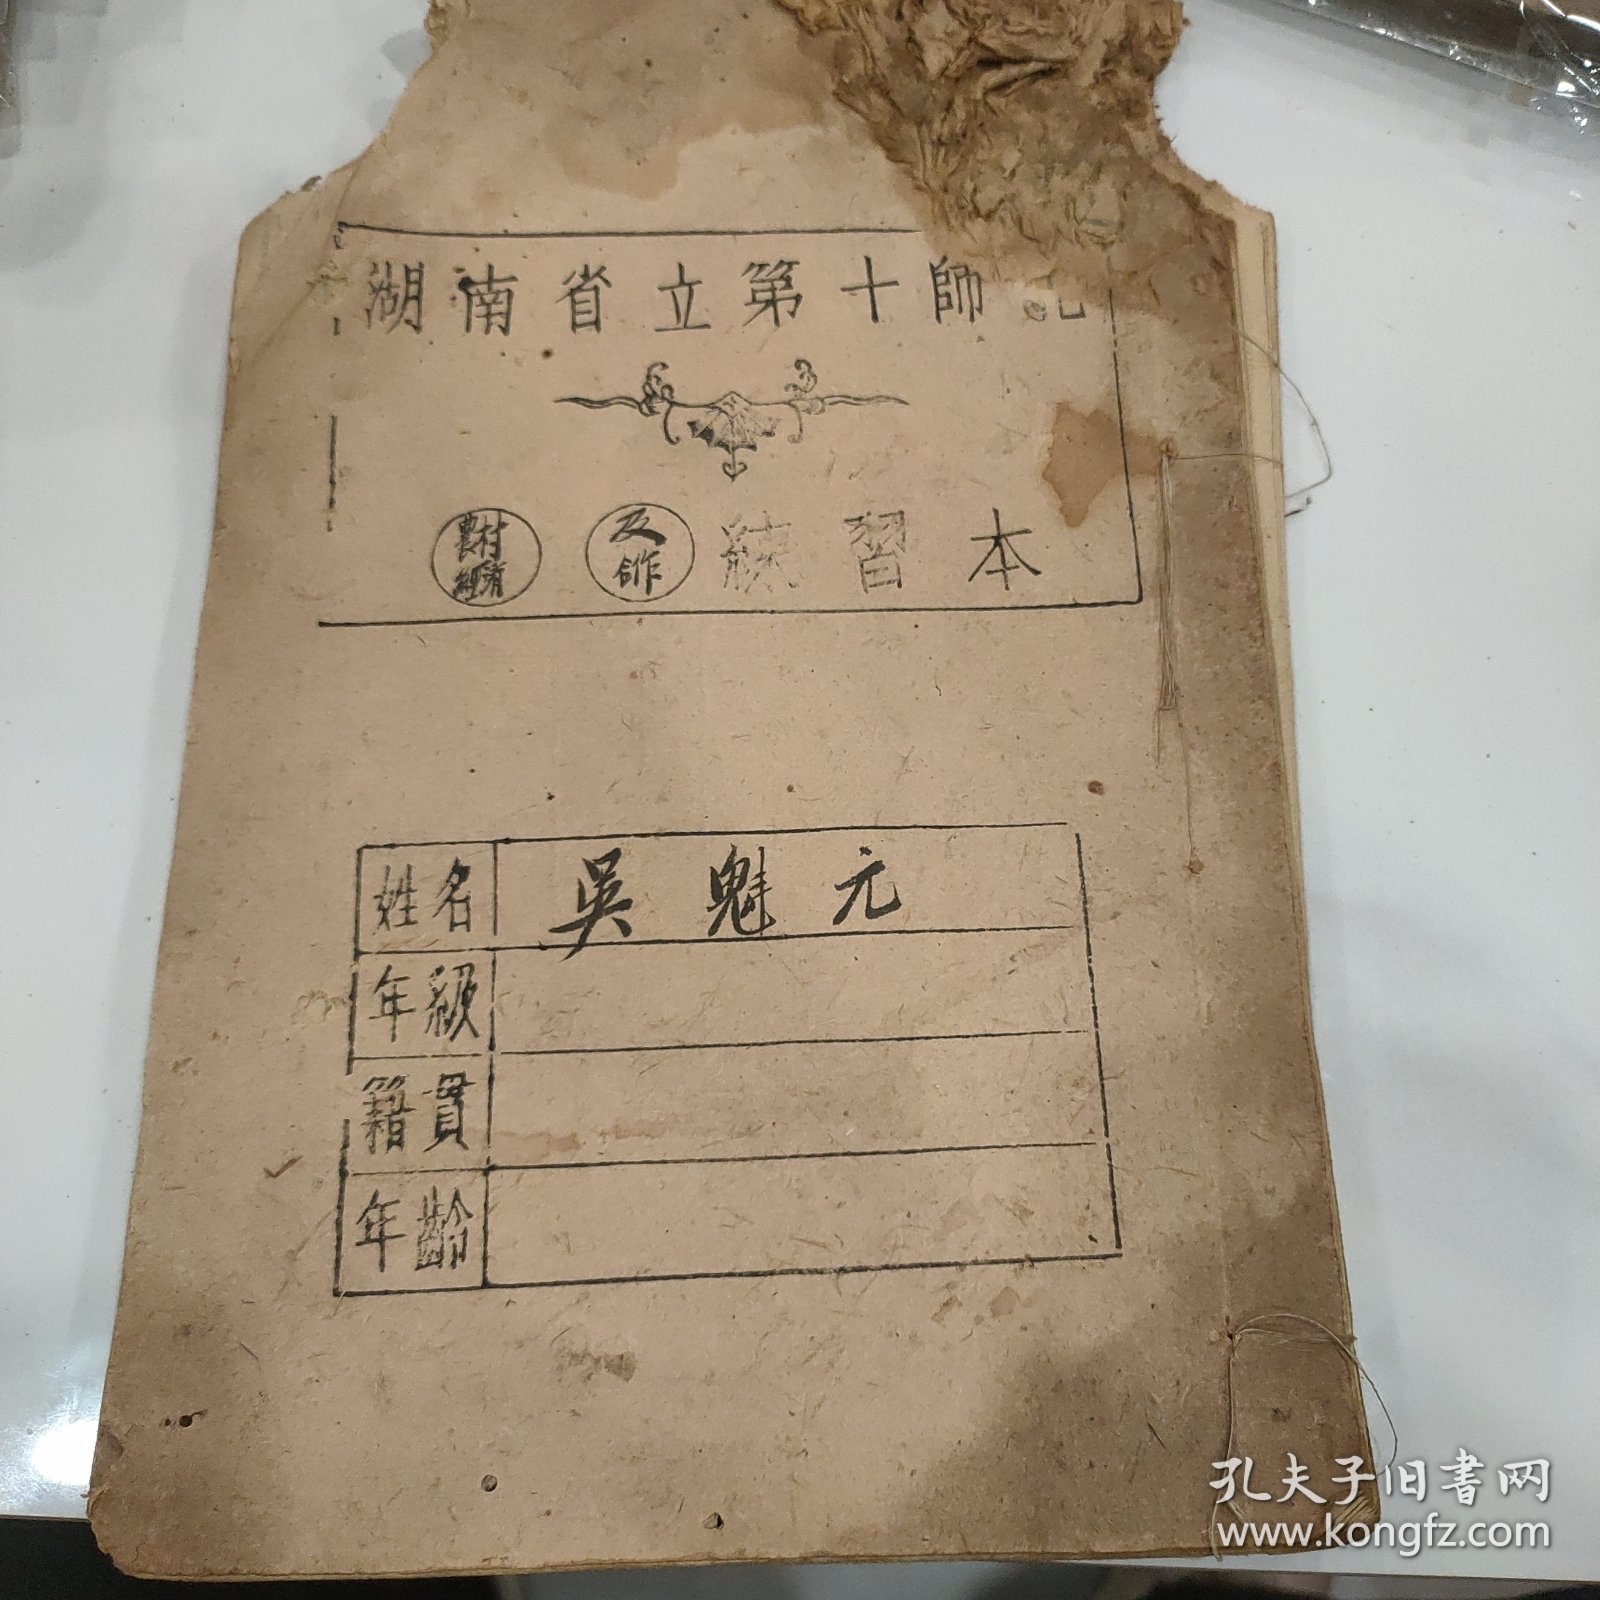 湖南省立第十師範
農村經濟 及合作 練習本
姓名 吳魁元
年級
籍貫
年齡
孔夫子旧书网
www.kongfz.com